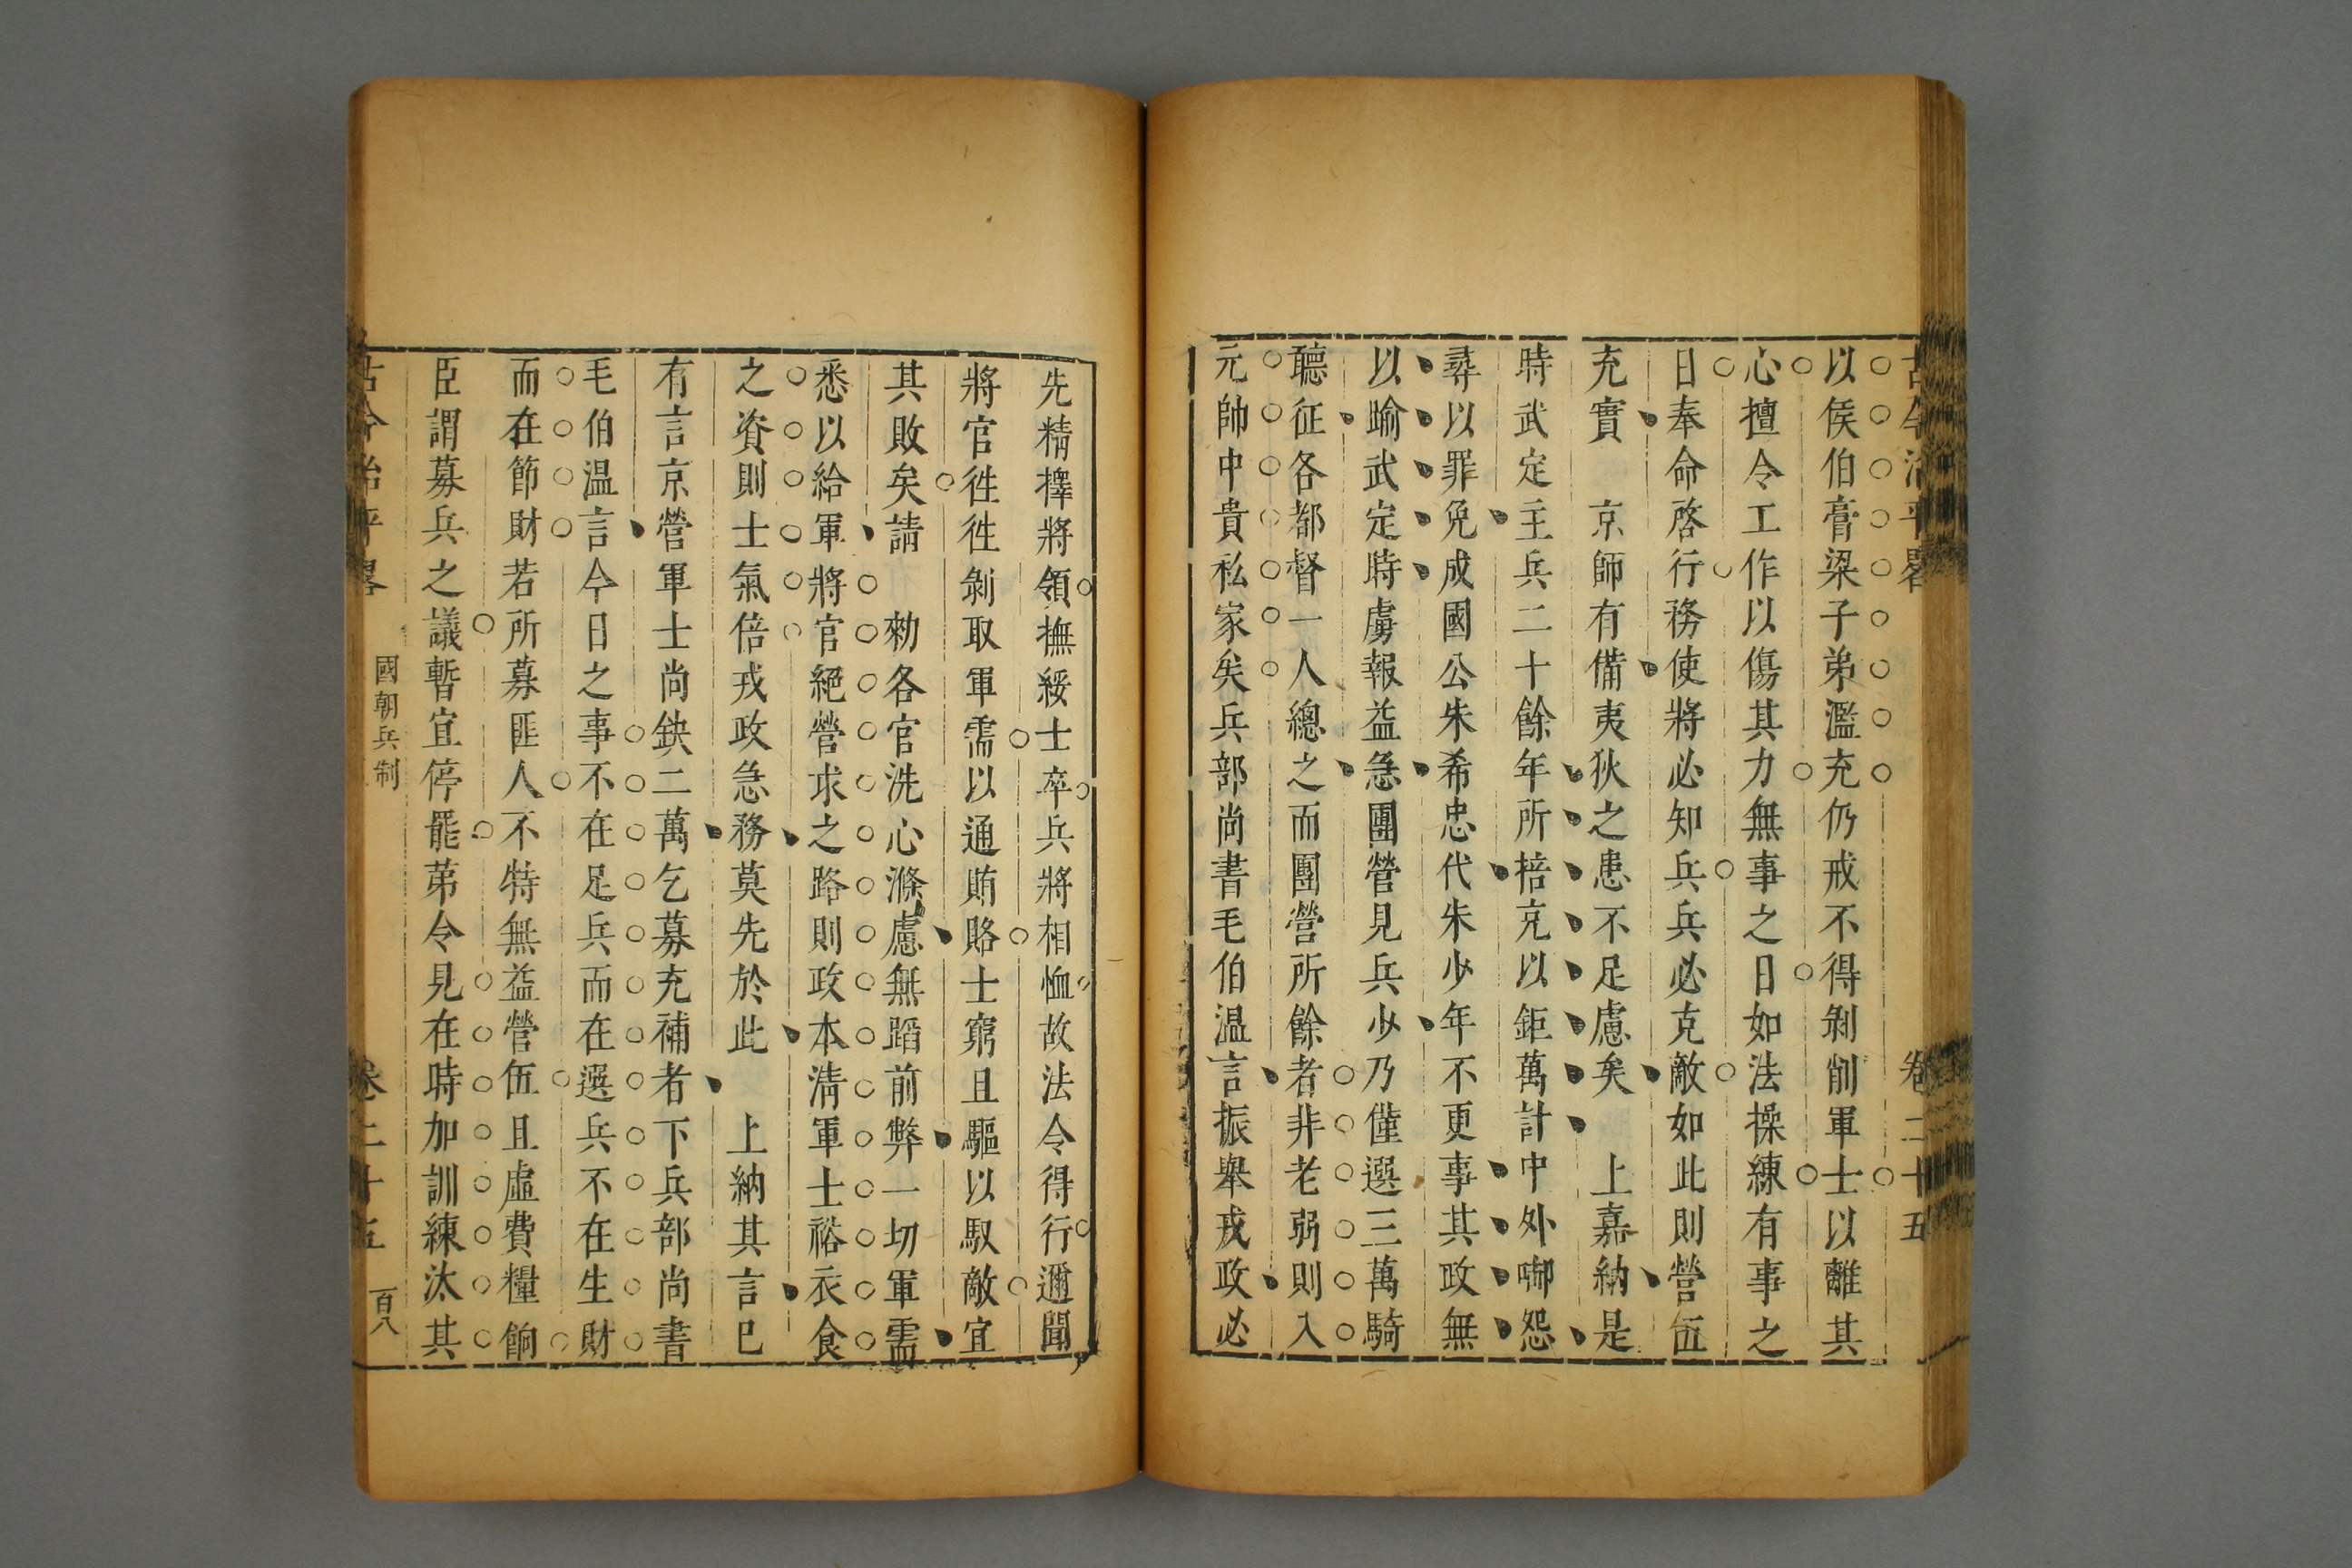 古今治平畧 卷二十五
以侯伯膏粱子弟濫充仍戒不得剝削軍士以離其
心擅令工作以傷其力無事之日如法操練有事之
日奉命啓行務使將必知兵兵必克敵如此則營伍
充實 京師有備夷狄之患不足慮矣 上嘉納是
時武定主兵二十餘年所掊克以鉅萬計中外啣怨
彞以罪免成國公朱希忠代朱少年不更事其政無
以踰武定時虜報益急團營見兵少乃僅選三萬騎
聽征各都督一人總之而團營所餘者非老弱則入
元帥中貴私家矣兵部尚書毛伯温言振舉戎政必
先精擇將領撫綏士卒兵將相恤故法令得行邇聞
將官徃徃剝取軍需以通賄賂士窮且驅以馭敵宜
其敗矣請 勑各官洗心滌慮無蹈前弊一切軍需
悉以給軍將官絕營求之路則政本清軍士裕衣食
之資則士氣倍戎政急務莫先於此 上納其言巳
有言京營軍士尚缺二萬乞募充補者下兵部尚書
毛伯温言今日之事不在足兵而在選兵不在生財
而在節財若所募匪人不特無益營伍且虛費糧餉
臣謂募兵之議暫宜停罷苐令見在時加訓練汰其
古今治平畧 國朝兵制 卷二十五 百八